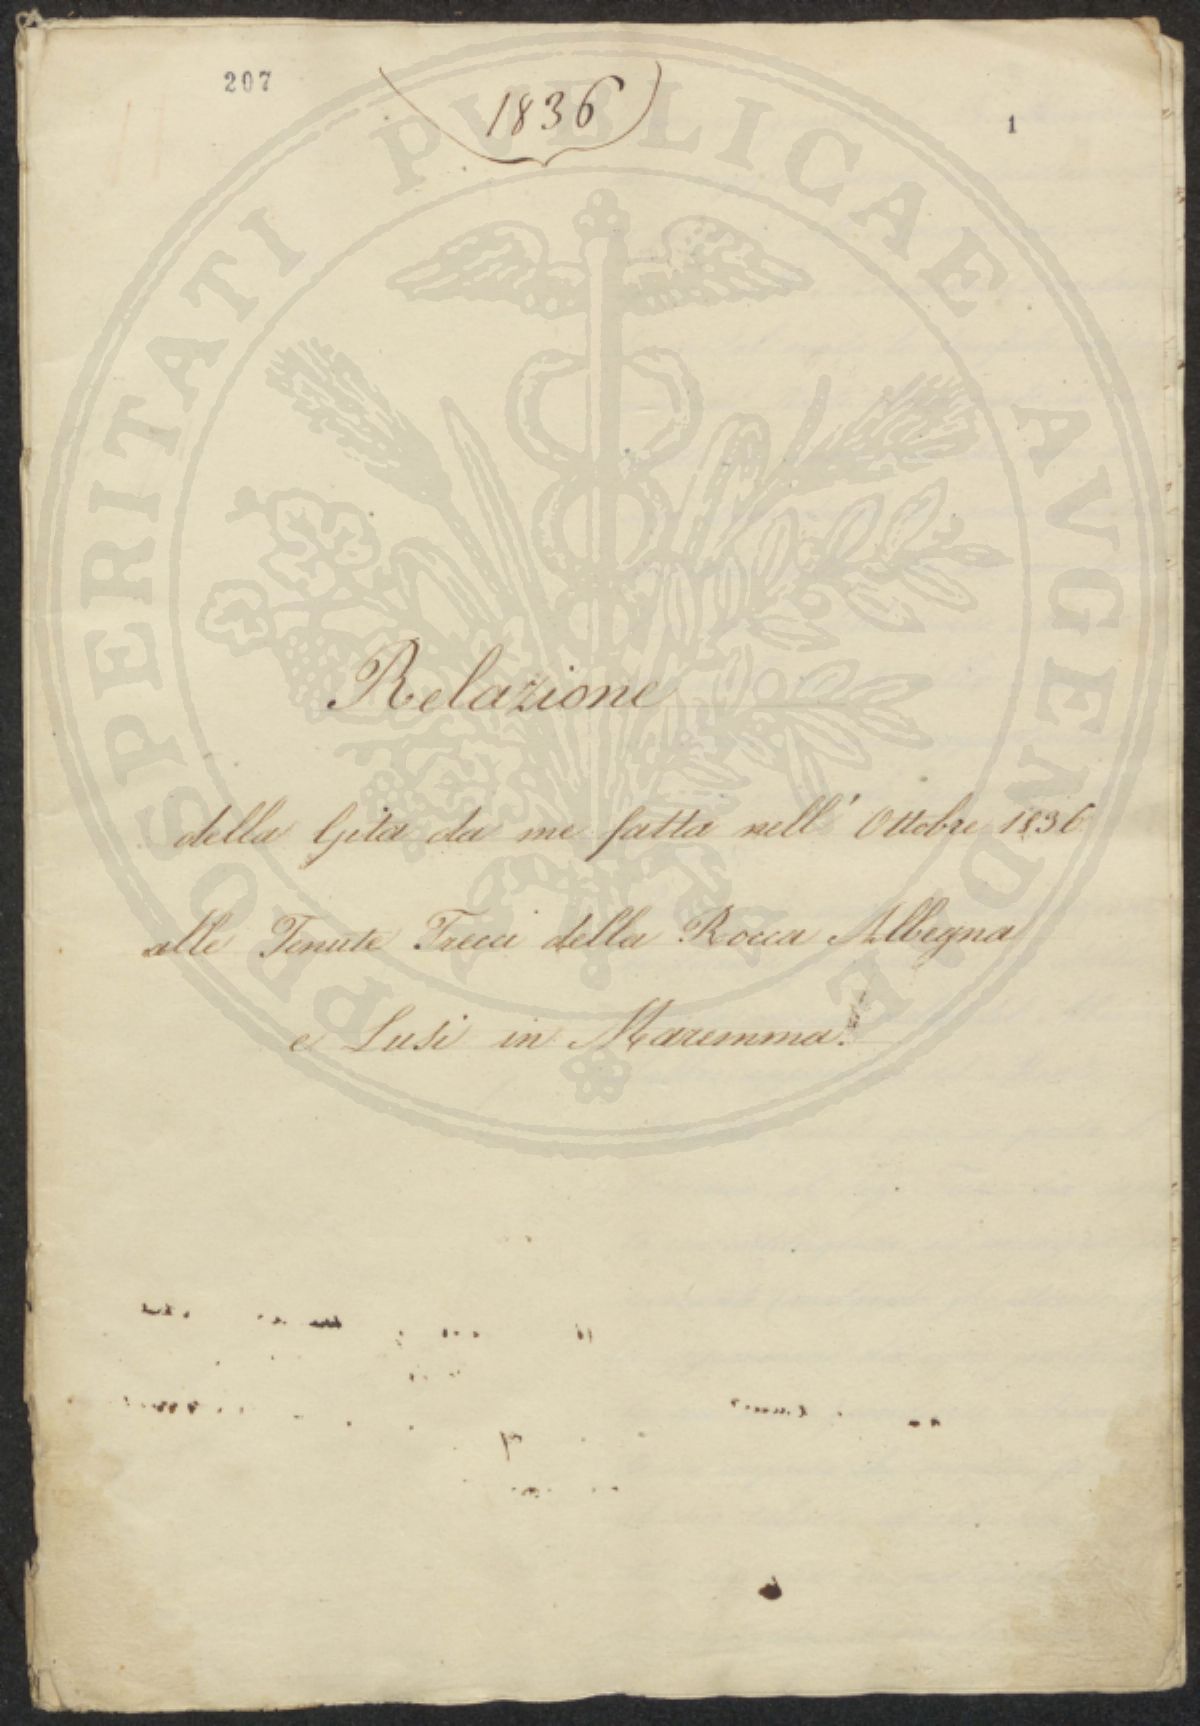 207
1836
1
PROSPERITATI PVBLICAE AVGENDAE
Relazione
della Gita da me fatta nell' Ottobre 1836
alle Tenute Trecci della Rocca Albegna
e Lusi in Maremma.